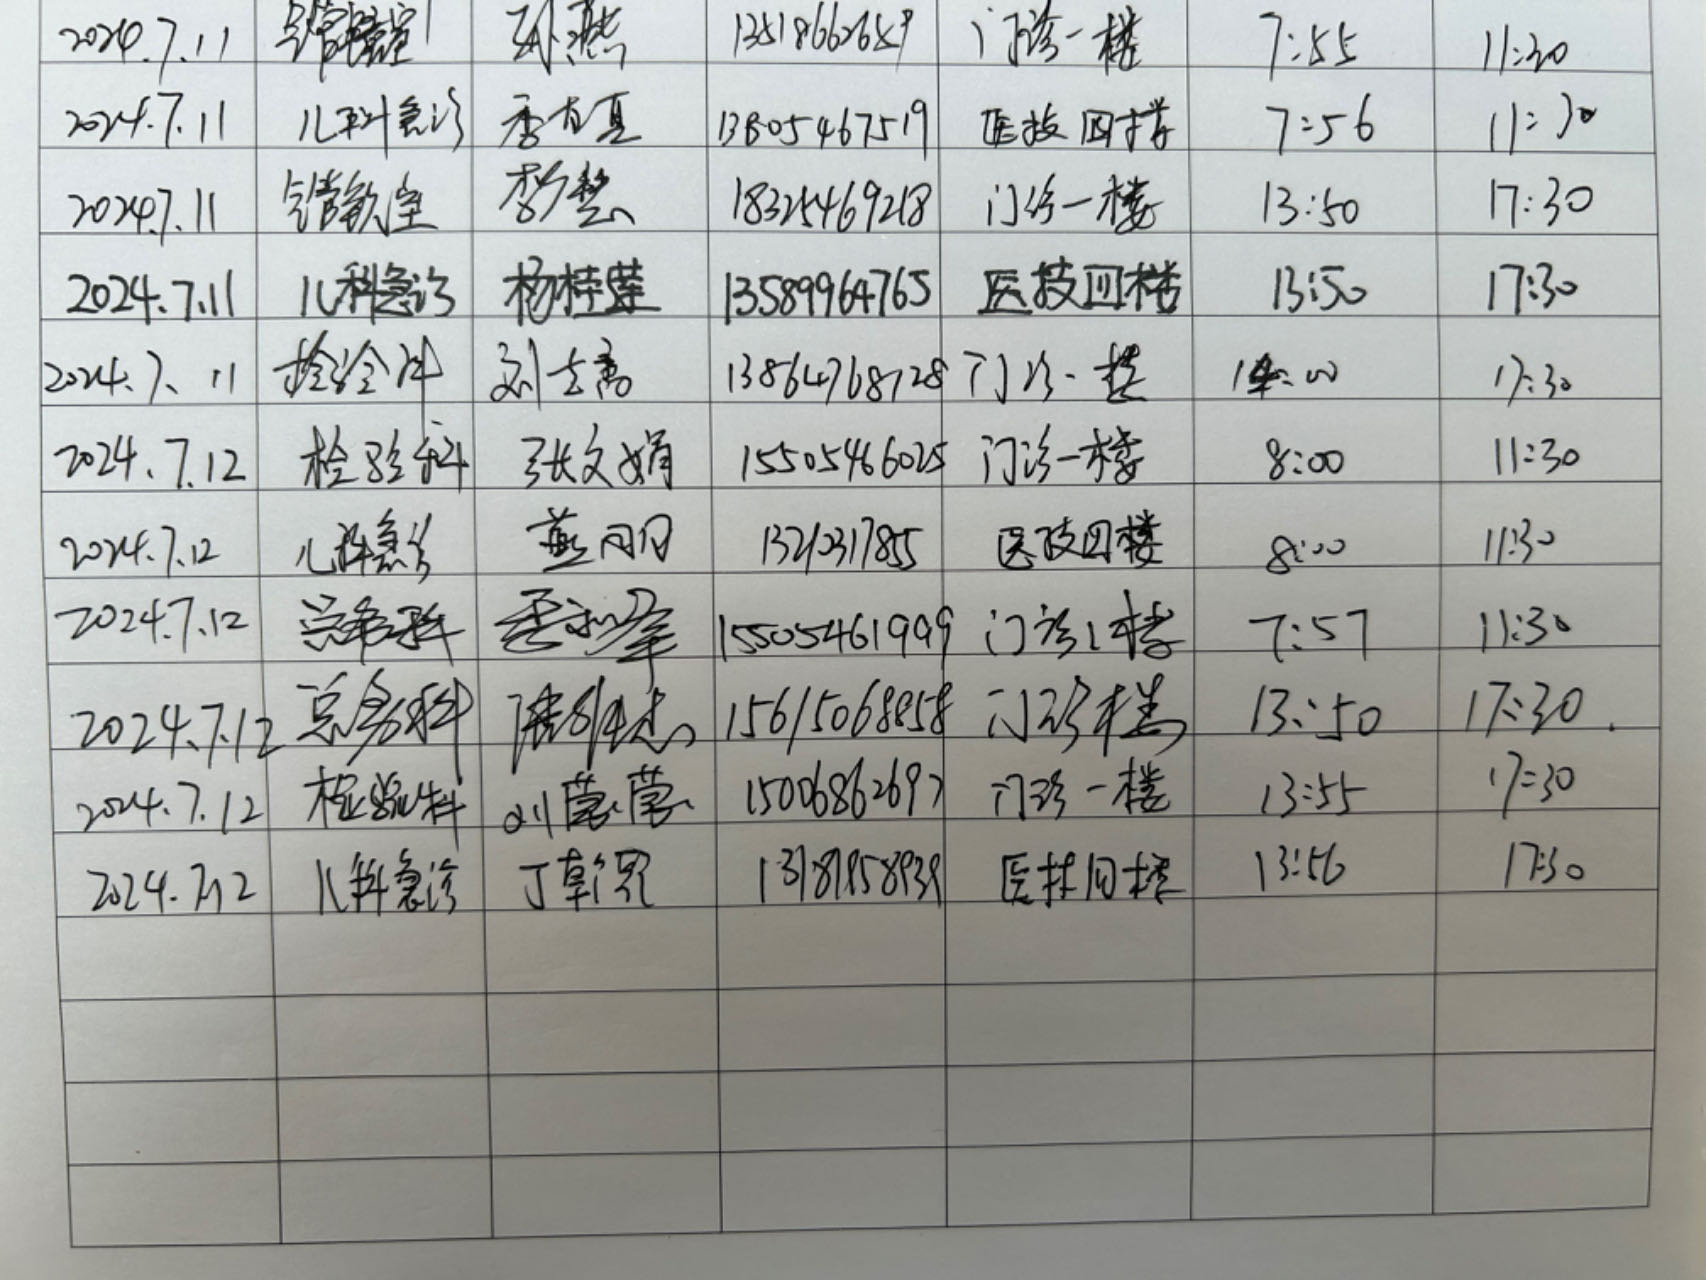 2024.7.11 孙燕 13518662659 门诊一楼 7:55 11:30
2024.7.11 儿科急诊 13805467519 医技四楼 7:56 11:30
2024.7.11 李慧 18325469218 门诊一楼 13:50 17:30
2024.7.11 儿科急诊 杨桂莲 13589964765 医技四楼 13:50 17:30
2024.7.11 检验科 刘志高 13864768728 门诊一楼 14:00 17:30
2024.7.12 检验科 张文娟 15505466025 门诊一楼 8:00 11:30
2024.7.12 儿科急诊 燕 医技四楼 8:00 11:30
2024.7.12 15505461999 门诊1楼 7:57 11:30
2024.7.12 总务科 15615068858 门诊楼 13:50 17:30.
2024.7.12 检验科 刘蒙蒙 15006862697 门诊一楼 13:55 17:30
2024.7.12 儿科急诊 医技四楼 13:56 17:30